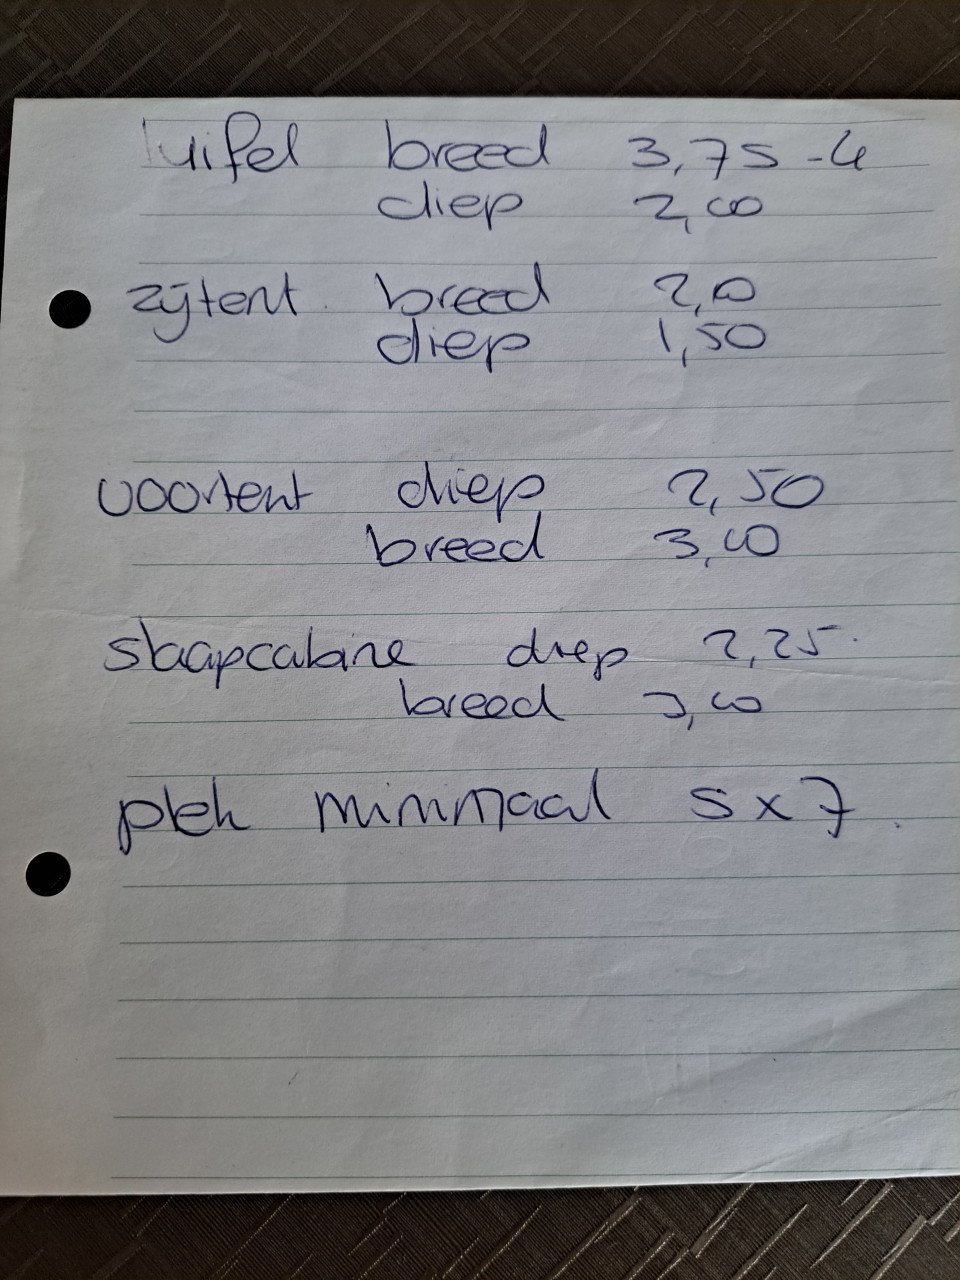 luifel breed 3,75 - 4
diep 2,00
zijtent breed 2,00
diep 1,50
voortent diep 2,50
breed 3,00
slaapcabine diep 2,25
breed 3,00
plek minimaal 5 x 7